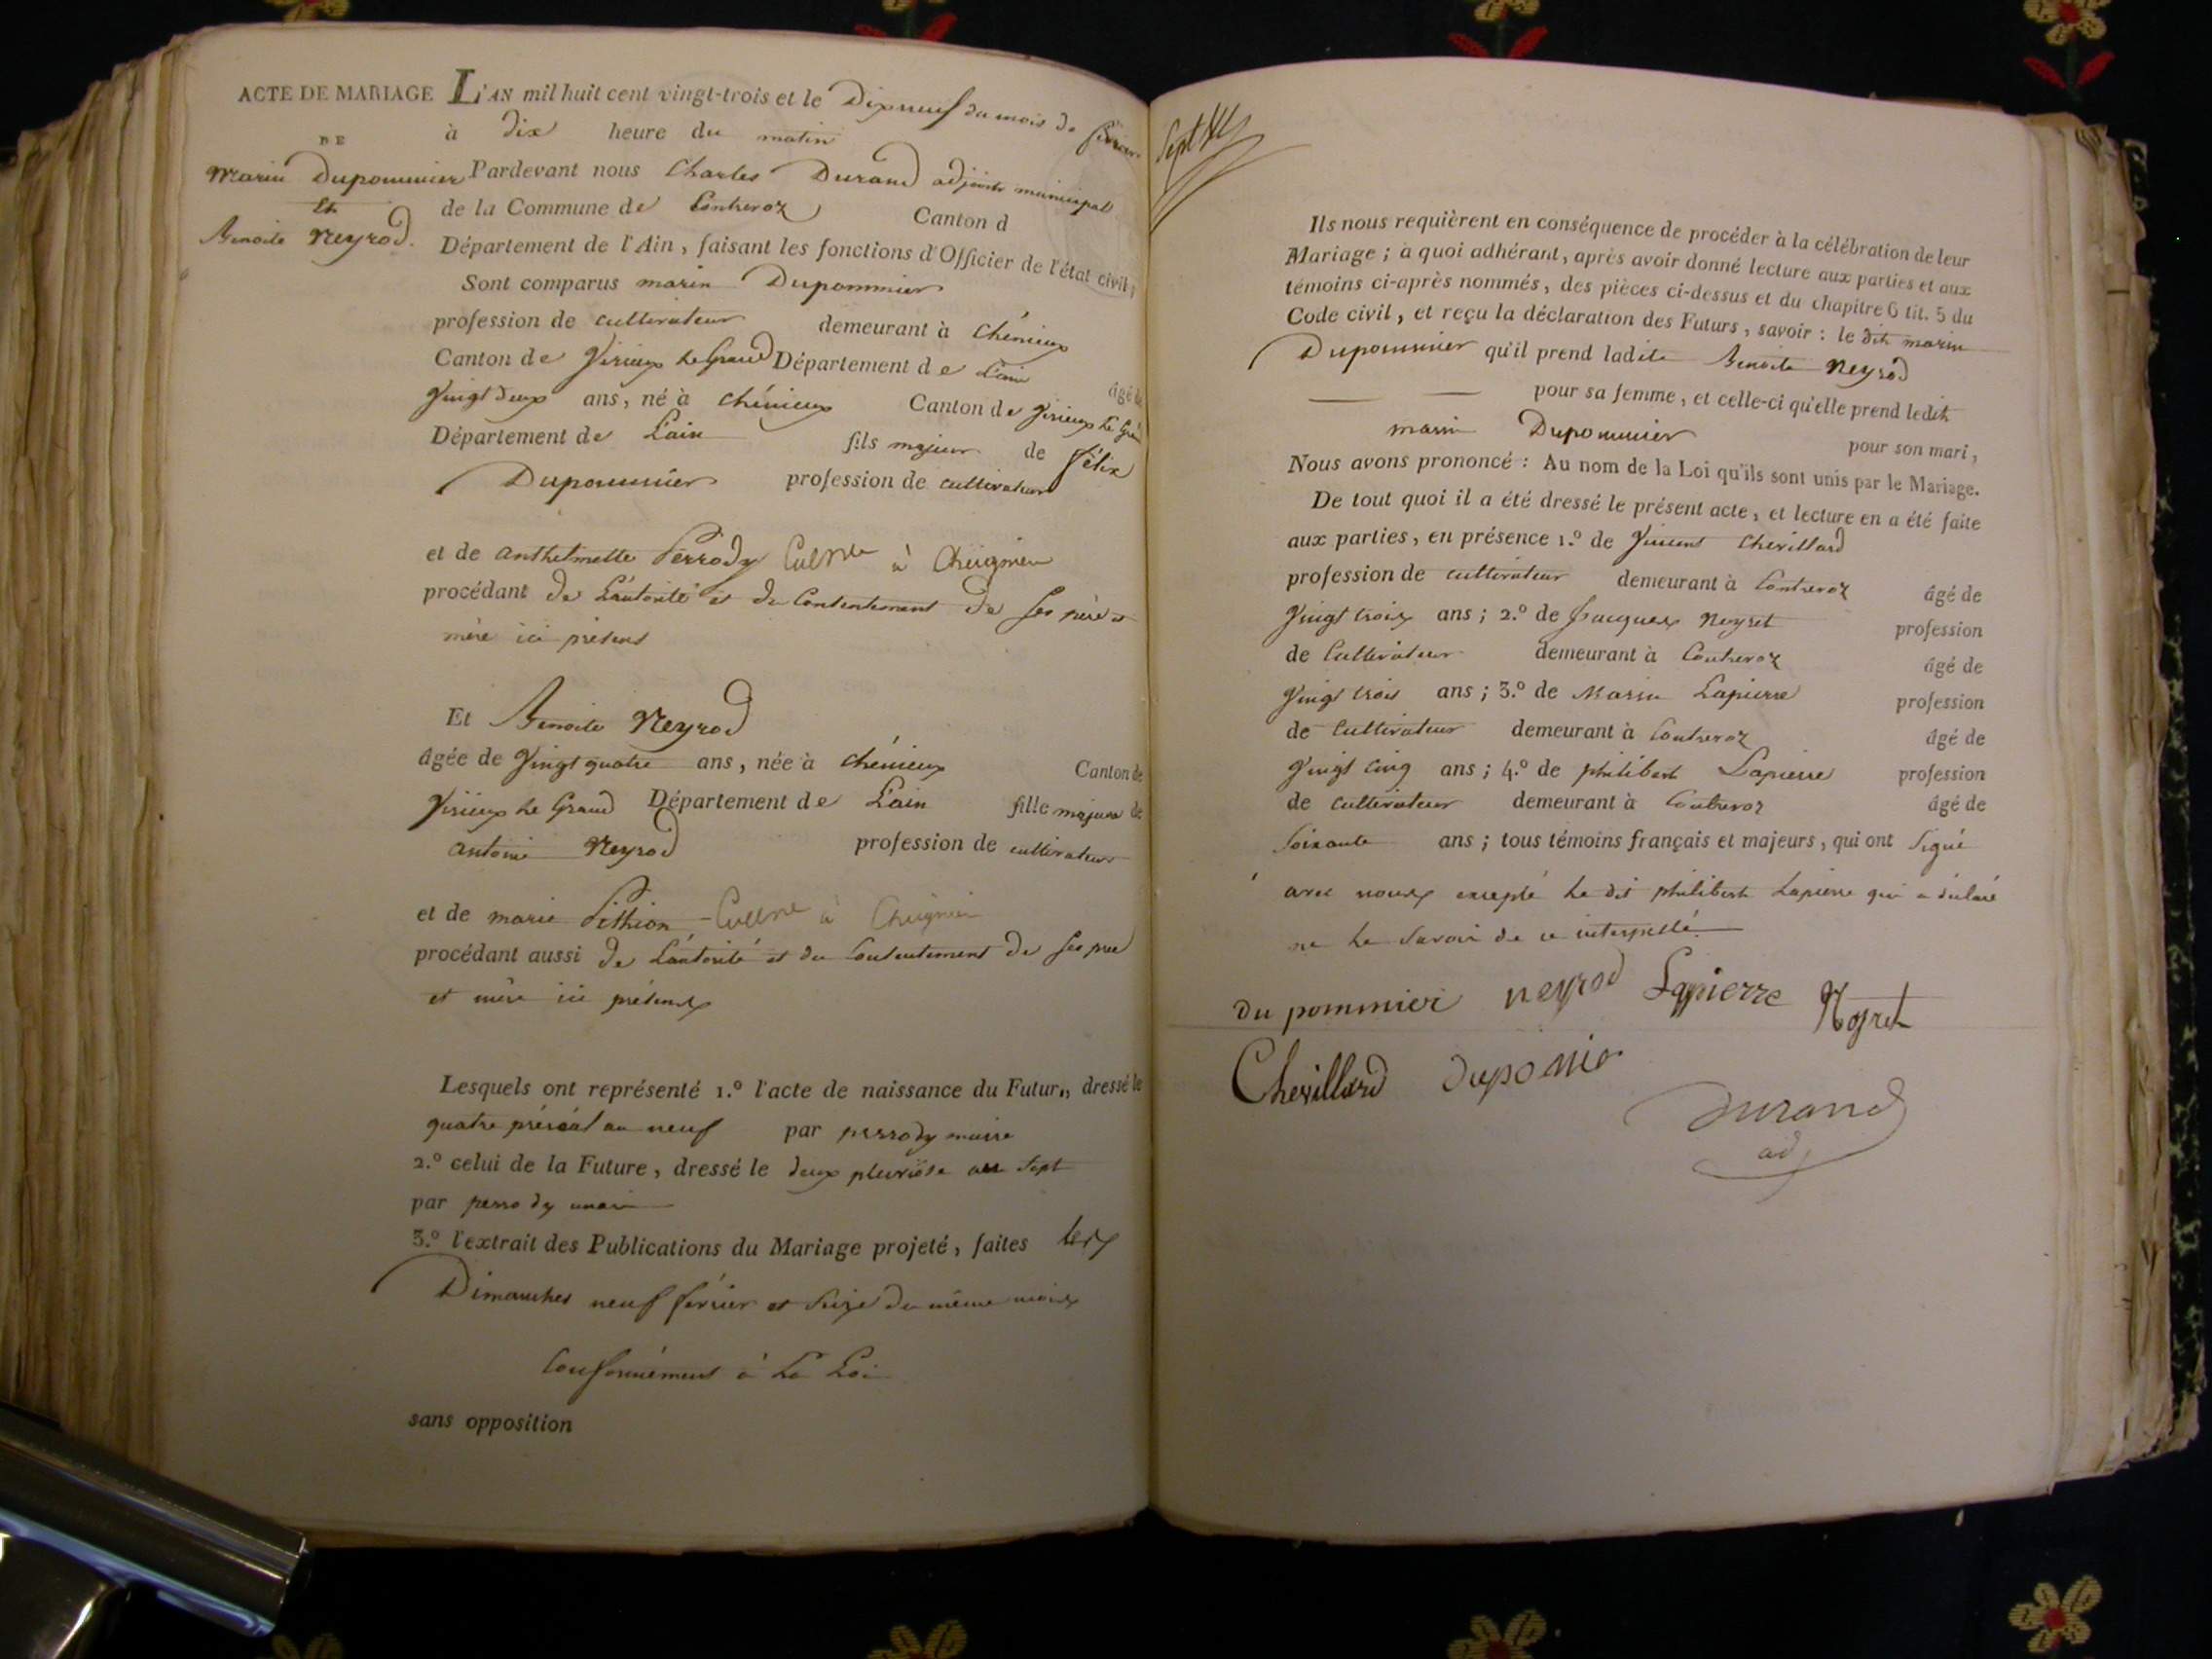 ACTE DE MARIAGE
DE
Marin Dupommier
Et
Benoite Neyrod.
L'AN mil huit cent vingt-trois et le Dixneuf du mois de février
à dix heure du matin
Pardevant nous Charles Durand adjoint municipal
de la Commune de Contrevoz Canton d
Département de l'Ain, faisant les fonctions d'Officier de l'état civil,
Sont comparus marin Dupommier
profession de cultivateur demeurant à Chénieux
Canton de Virieux Le Grand Département de L'ain âgé de
Vingt deux ans, né à Chénieux Canton de Virieux Le Grand
Département de L'ain fils majeur de félix
Dupommier profession de cultivateur
et de anthelmette Perrody à
procédant de L'autorité et du Contentement de ses père et
mère ici présent
Et Benoite Neyrod
âgée de Vingt quatre ans, née à Chénieux Canton de
Virieux Le Grand Département de L'ain fille majeure de
antoine Neyrod profession de cultivateur
et de marie Pithion à
procédant aussi de L'autorité et du Contentement de ses pere
et mère ici présents
Lesquels ont représenté 1.º l'acte de naissance du Futur, dressé le
quatre prérial an neuf par perrody maire
2.º celui de la Future, dressé le deux pluviôse an sept
par perrody maire
3.º l'extrait des Publications du Mariage projeté, faites les
Dimanches neuf février et seize du même mois
Conformément à La Loi
sans opposition
Sept
Ils nous requièrent en conséquence de procéder à la célébration de leur
Mariage ; à quoi adhérant, après avoir donné lecture aux parties et aux
témoins ci-après nommés, des pièces ci-dessus et du chapitre 6 tit. 5 du
Code civil, et reçu la déclaration des Futurs, savoir : le dit marin
Dupommier qu'il prend ladite Benoite Neyrod
pour sa femme, et celle-ci qu'elle prend ledit
marin Dupommier pour son mari,
Nous avons prononcé : Au nom de la Loi qu'ils sont unis par le Mariage.
De tout quoi il a été dressé le présent acte, et lecture en a été faite
aux parties, en présence 1.º de Vincent Chevillard
profession de cultivateur demeurant à Contrevoz âgé de
Vingt trois ans ; 2.º de Jacques Neyret profession
de Cultivateur demeurant à Contrevoz âgé de
Vingt trois ans ; 3.º de Marin Lapierre profession
de Cultivateur demeurant à Contrevoz âgé de
Vingt cinq ans ; 4.º de philibert Lapierre profession
de cultivateur demeurant à Contrevoz âgé de
Soixante ans ; tous témoins français et majeurs, qui ont signé
avec nous excepté Le dit philibert Lapierre qui a déclaré
ne Le savoir de ce interpellé
du pommier neyrod Lapierre Neyret
Chevillard duponier
Durand
adj